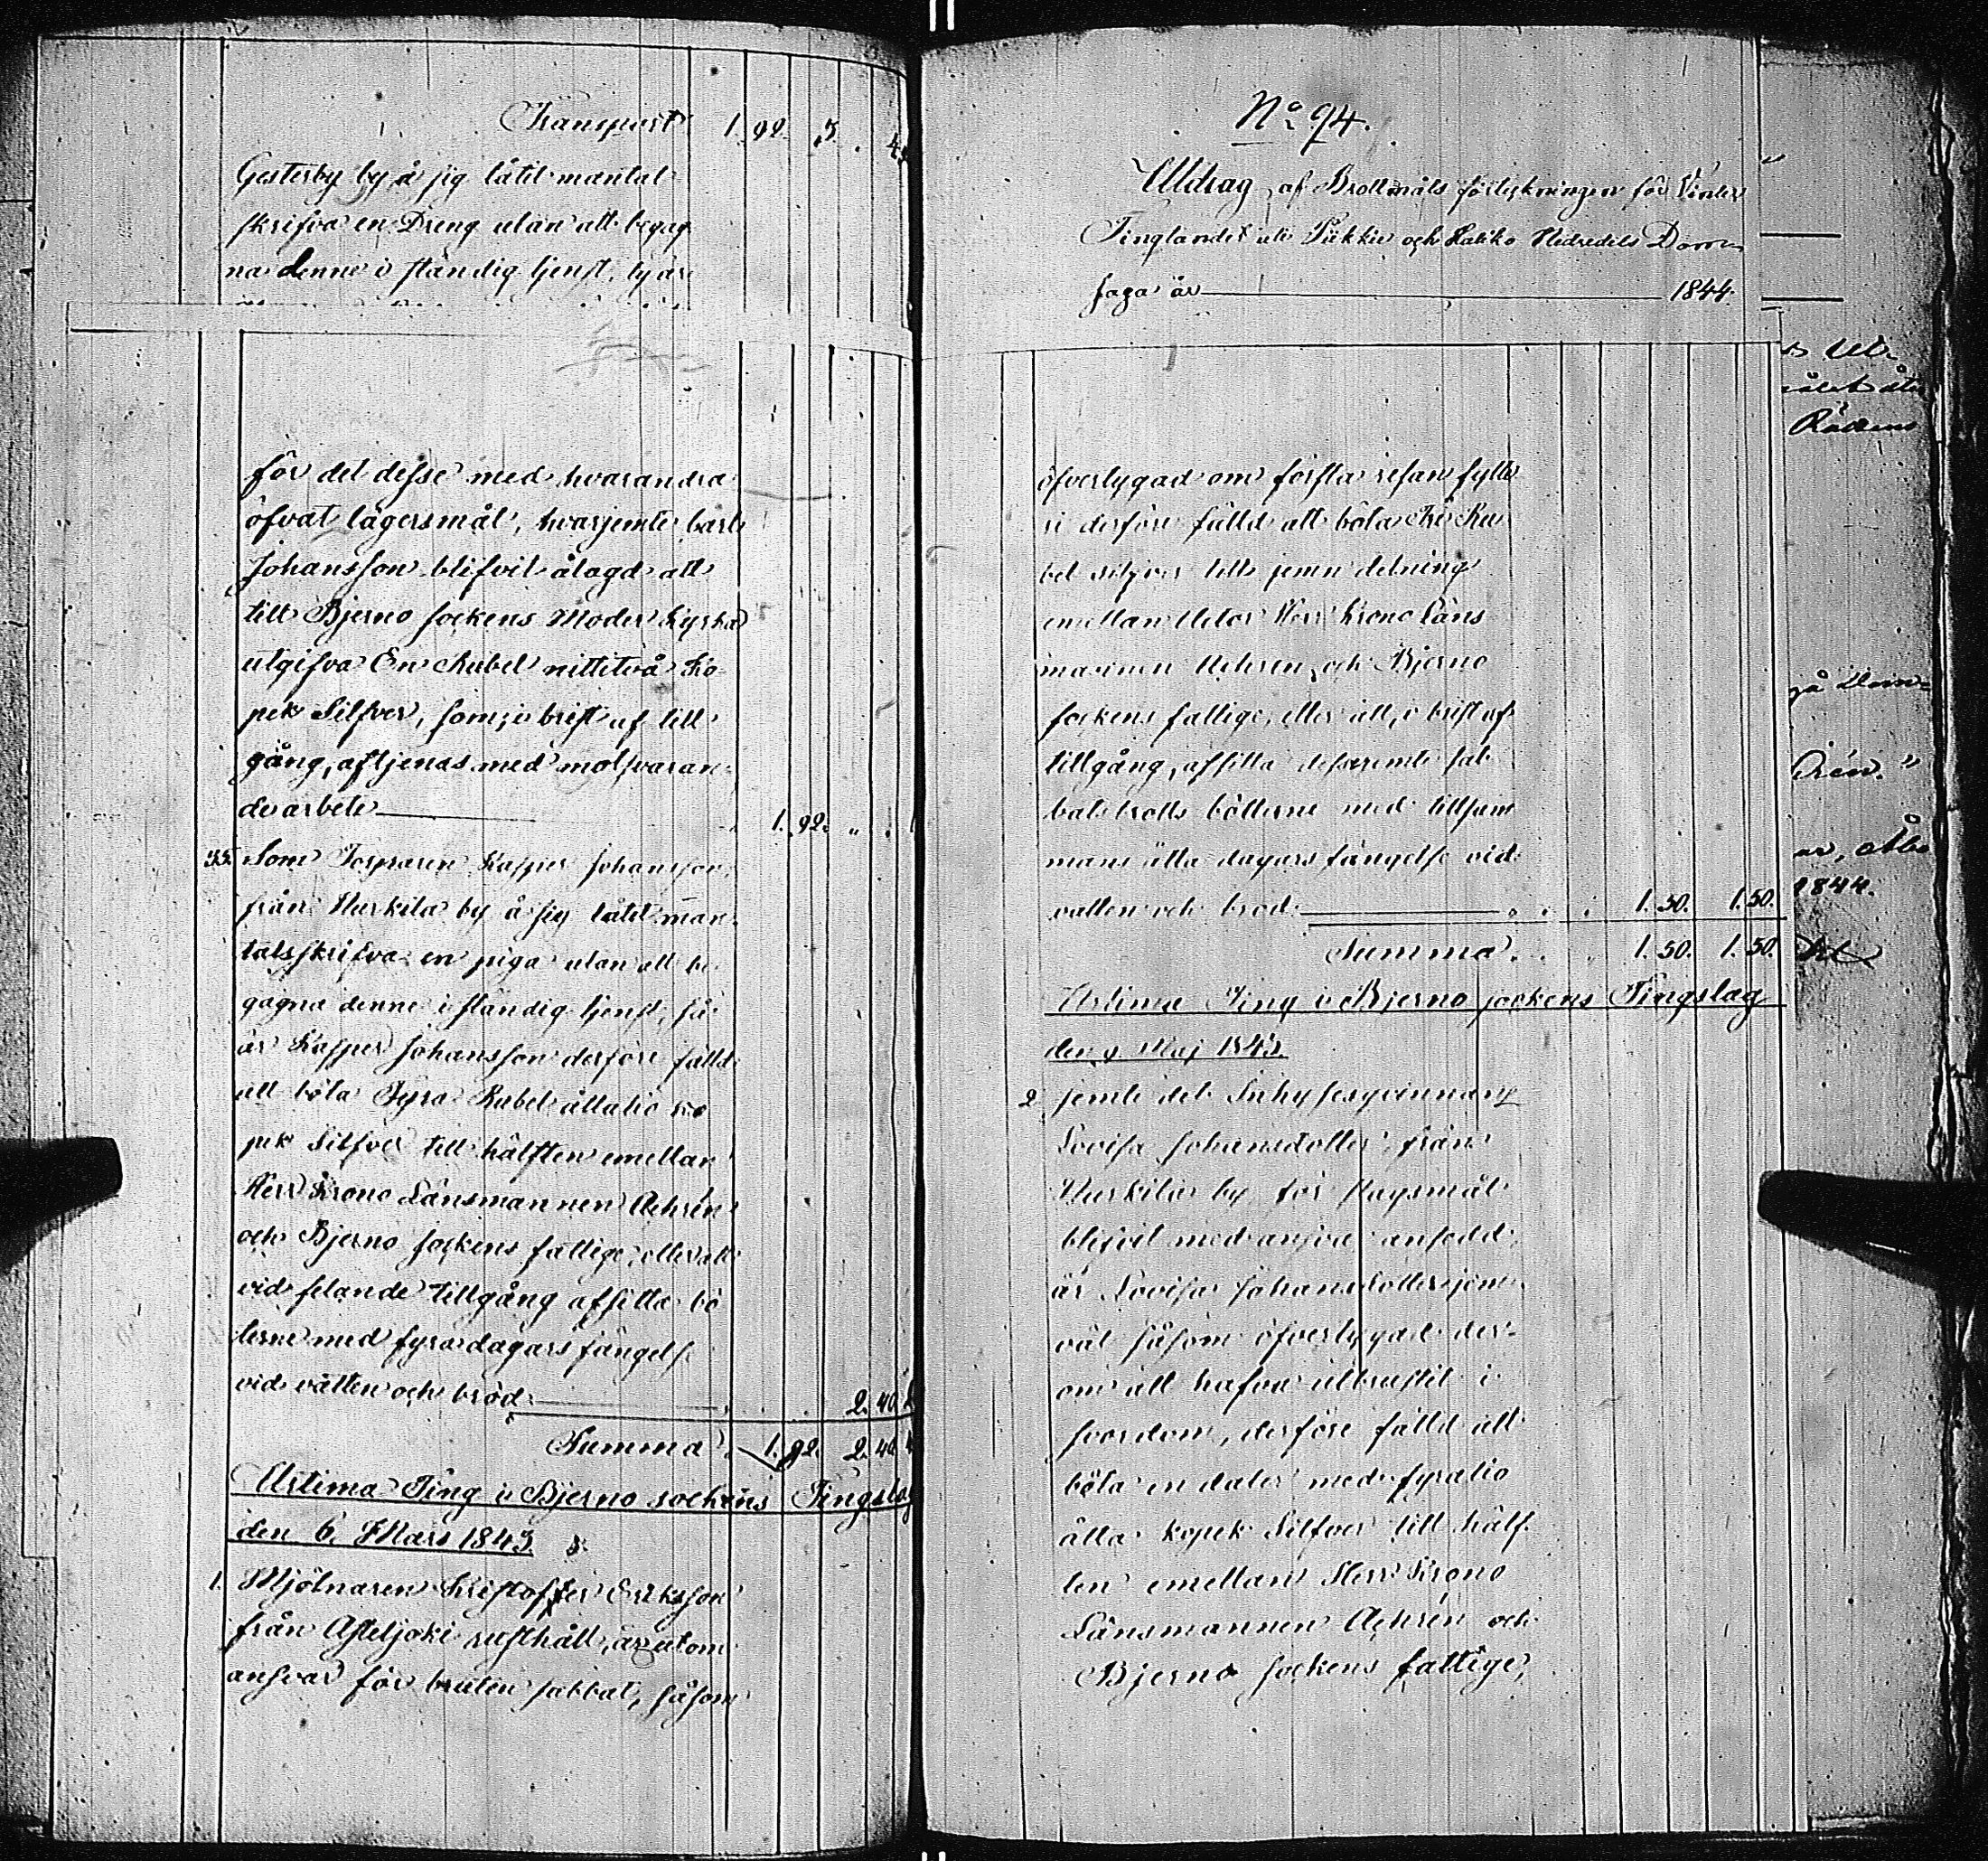 Transport 1. 92. 3. 4
Gesterby by å sig låtit mantal
skrifva en Dreng utan att begag
na denne i ständig tjenst, ty är
för det desse med hvarandra
öfvat lägersmål, hvarjemte
Johansson blifvit ålagd att
till Bjerno sockens Moder Kyrka
utgifva En Rubel nittitvå Ko
pek Silfver, som, i brist af till
gång, aftjenas med motsvaran
de arbete 1. 92. „
35. Som Torparen Kasper Johansson
från Hurkila by å sig låtit man
talsskrifva en piga utan att be
gagna denne i ständig tjenst, så
är Kasper Johansson derföre fälld
att böta Fyra Rubel åttatio ko
pek Silfver till hälften emellan
Herr Krono Länsmannen Achrén
och Bjerno sockens fattige, eller att
vid felande tillgång afsitta bö
terne med fyra dagars fängelse
vid vatten och bröd 2. 40.
Summa 1. 92. 2. 40
Urtima Ting i Bjerno sockens Tingslag
den 6. Mars 1843.
1. Mjölnaren Kristoffer Eriksson
från Asteljoki rusthåll, är utom
ansvar för bruten sabbat, såsom
No 94.
Utdrag af Brottmåls förteckningen för Vinter
Tinglandet uti Pükkie och Haliko Häradets Dom
saga år 1844.
öfvertygad om första resan fylle
ri derföre fälld att böta Tre Ru
bel silfver till jemn delning
emellan Herr Krono Läns
mannen Achren och Bjerno
sockens fattige, eller att, i brist af
tillgång, afsitta desse jemte sab
bats brotts böterne med tillsam
mans åtta dagars fängelse vid
vatten och bröd 1. 50. 1. 50.
Summa 1. 50. 1. 50.
Urtima Ting i Bjerno sockens Tingslag
den 9 Maj 1843.
2 jemte det Inhyseqvinnan
Lovisa Johansdotter från
Hurkila by för
blifvit med ansvar ansedd,
är Lovisa Johansdotter jem
väl såsom öfvertygad der
om att hafva utbrustit i
svordom, derföre fälld att
böta en daler med fyratio
åtta kopek Silfver till hälf
ten emellan Herr Krono
Länsmannen Achrén och
Bjerno sockens fattige,
1844.